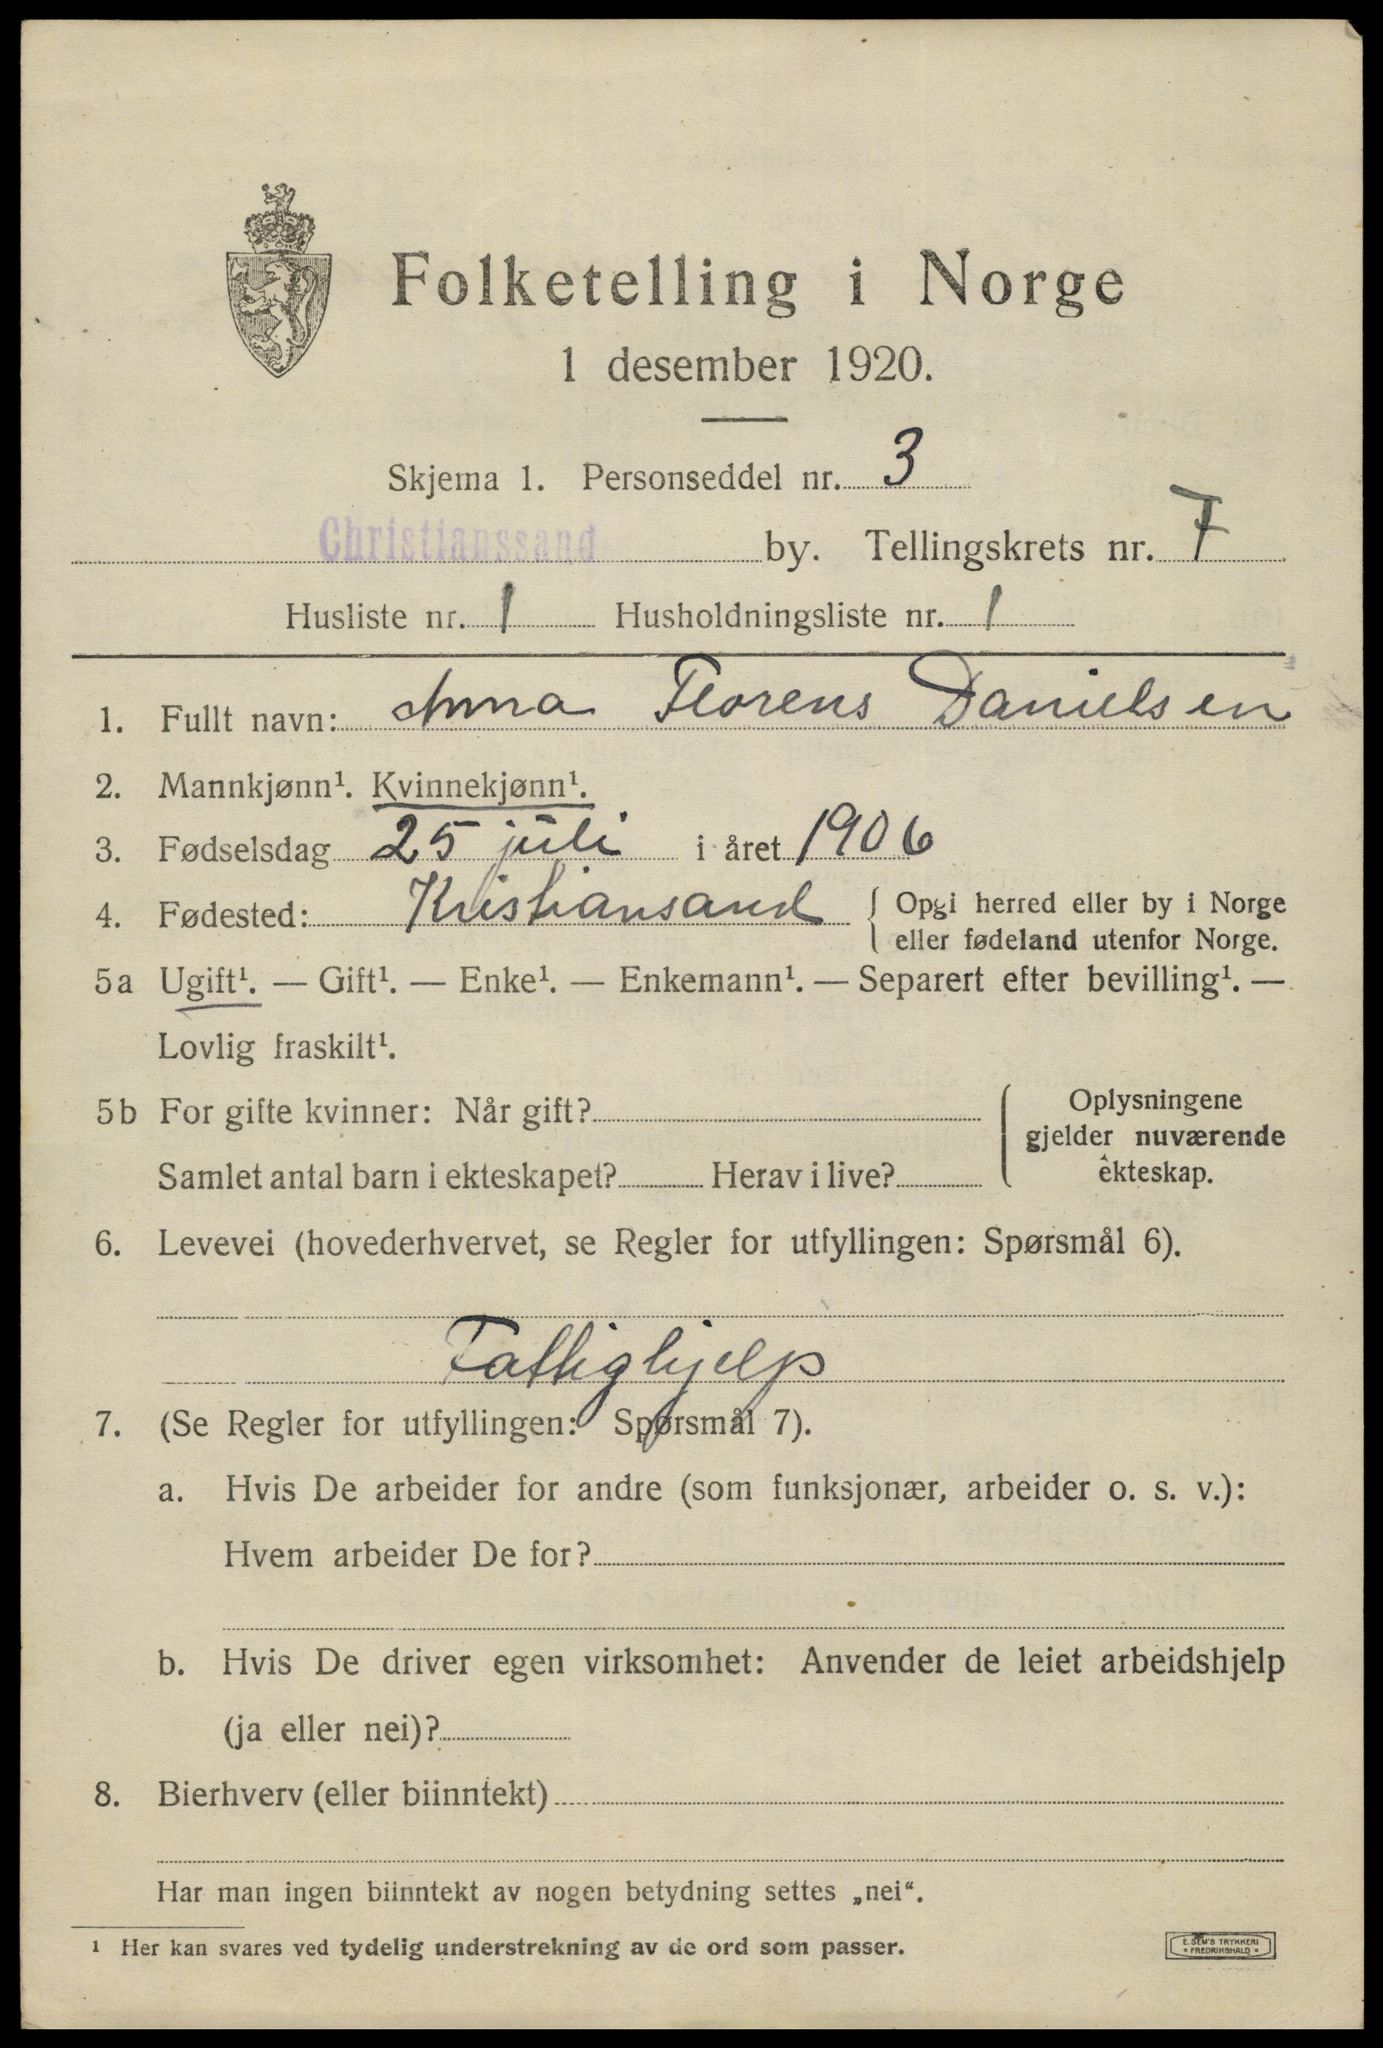 Folketelling i Norge
1 desember 1920.
Skjema 1. Personseddel nr. 3
Christianssand by. Tellingskrets nr. 7
Husliste nr. 1 Husholdningsliste nr. 1
1. Fullt navn: Anna Florens Danielsen
2. Mannkjønn¹. Kvinnekjønn¹.
3. Fødselsdag 25 juli i året 1906
4. Fødested: Kristiansand { Opgi herred eller by i Norge
eller fødeland utenfor Norge.
5a Ugift¹. — Gift¹. — Enke¹. — Enkemann¹. — Separert efter bevilling¹. —
Lovlig fraskilt¹.
5b For gifte kvinner: Når gift? { Oplysningene
gjelder nuværende
ekteskap.
Samlet antal barn i ekteskapet? Herav i live?
6. Levevei (hovederhvervet, se Regler for utfyllingen: Spørsmål 6).
Fattighjelp
7. (Se Regler for utfyllingen: Spørsmål 7).
a. Hvis De arbeider for andre (som funksjonær, arbeider o. s. v.):
Hvem arbeider De for?
b. Hvis De driver egen virksomhet: Anvender de leiet arbeidshjelp
(ja eller nei)?
8. Bierhverv (eller biinntekt)
Har man ingen biinntekt av nogen betydning settes „nei“.
¹ Her kan svares ved tydelig understrekning av de ord som passer.
E. SEM'S TRYKKERI
* FREDRIKSHALD *